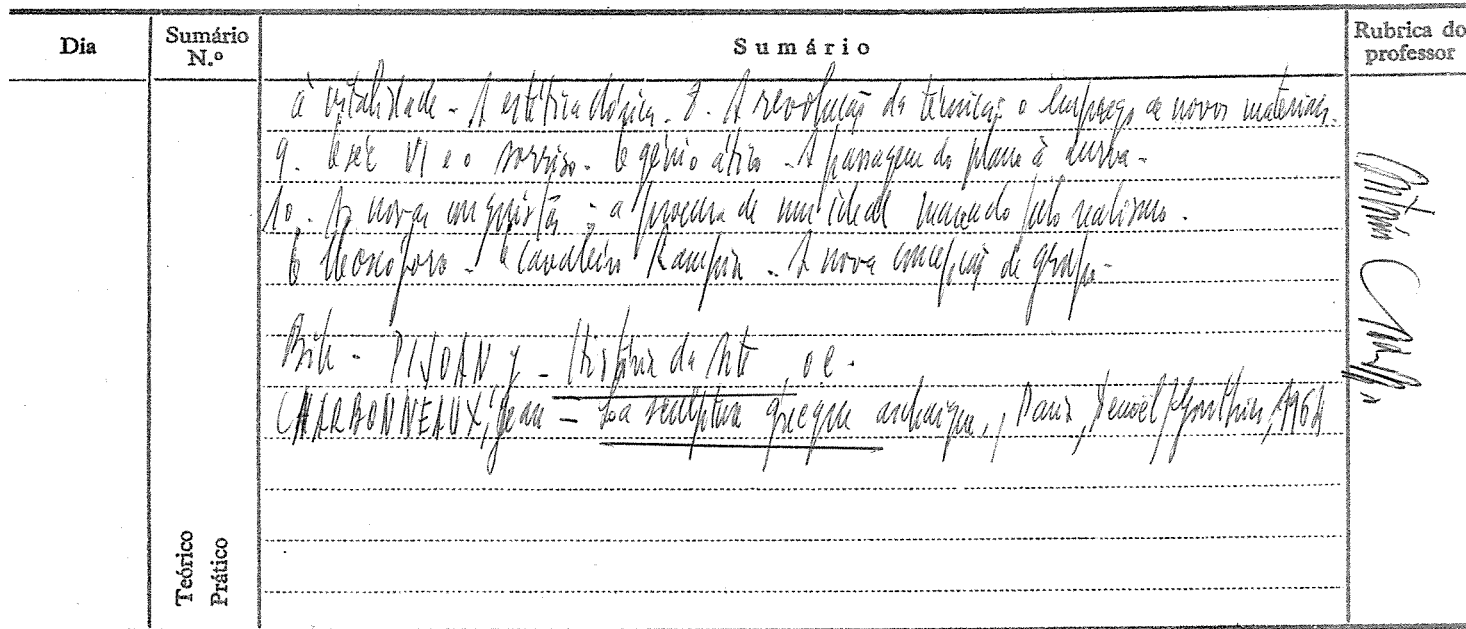 Dia
Sumário N.º
Sumário
Rubrica do professor
à vitalidade - A estética dórica. 8. A revolução da técnica: o emprego de novos materiais.
9. O séc VI e o sorriso. O génio ático - A passagem do plano à curva -
10. As novas conquistas: a procura de um ideal marcado pelo realismo.
O Moscóforo - O Cavaleiro Rampin - A nova concepção de grupo -
Bib - PIJOAN J - História da Arte o c -
CHARBONNEAUX, Jean - La sculpture grecque archaïque, Paris, Denoël/Gonthier, 1964
Teórico
Prático
António